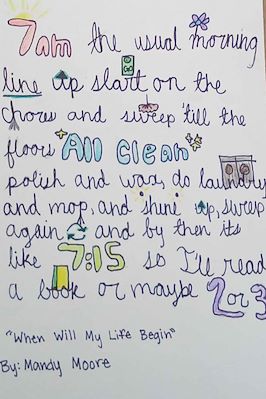 7am the usual morning
line up start on the
chores and sweep 'till the
floors "All Clean"
polish and wax, do laundry
and mop, and shine up, sweep
again and by then its
like 7:15 so I'll read
a book or maybe 2 or 3
"When Will My Life Begin"
By: Mandy Moore